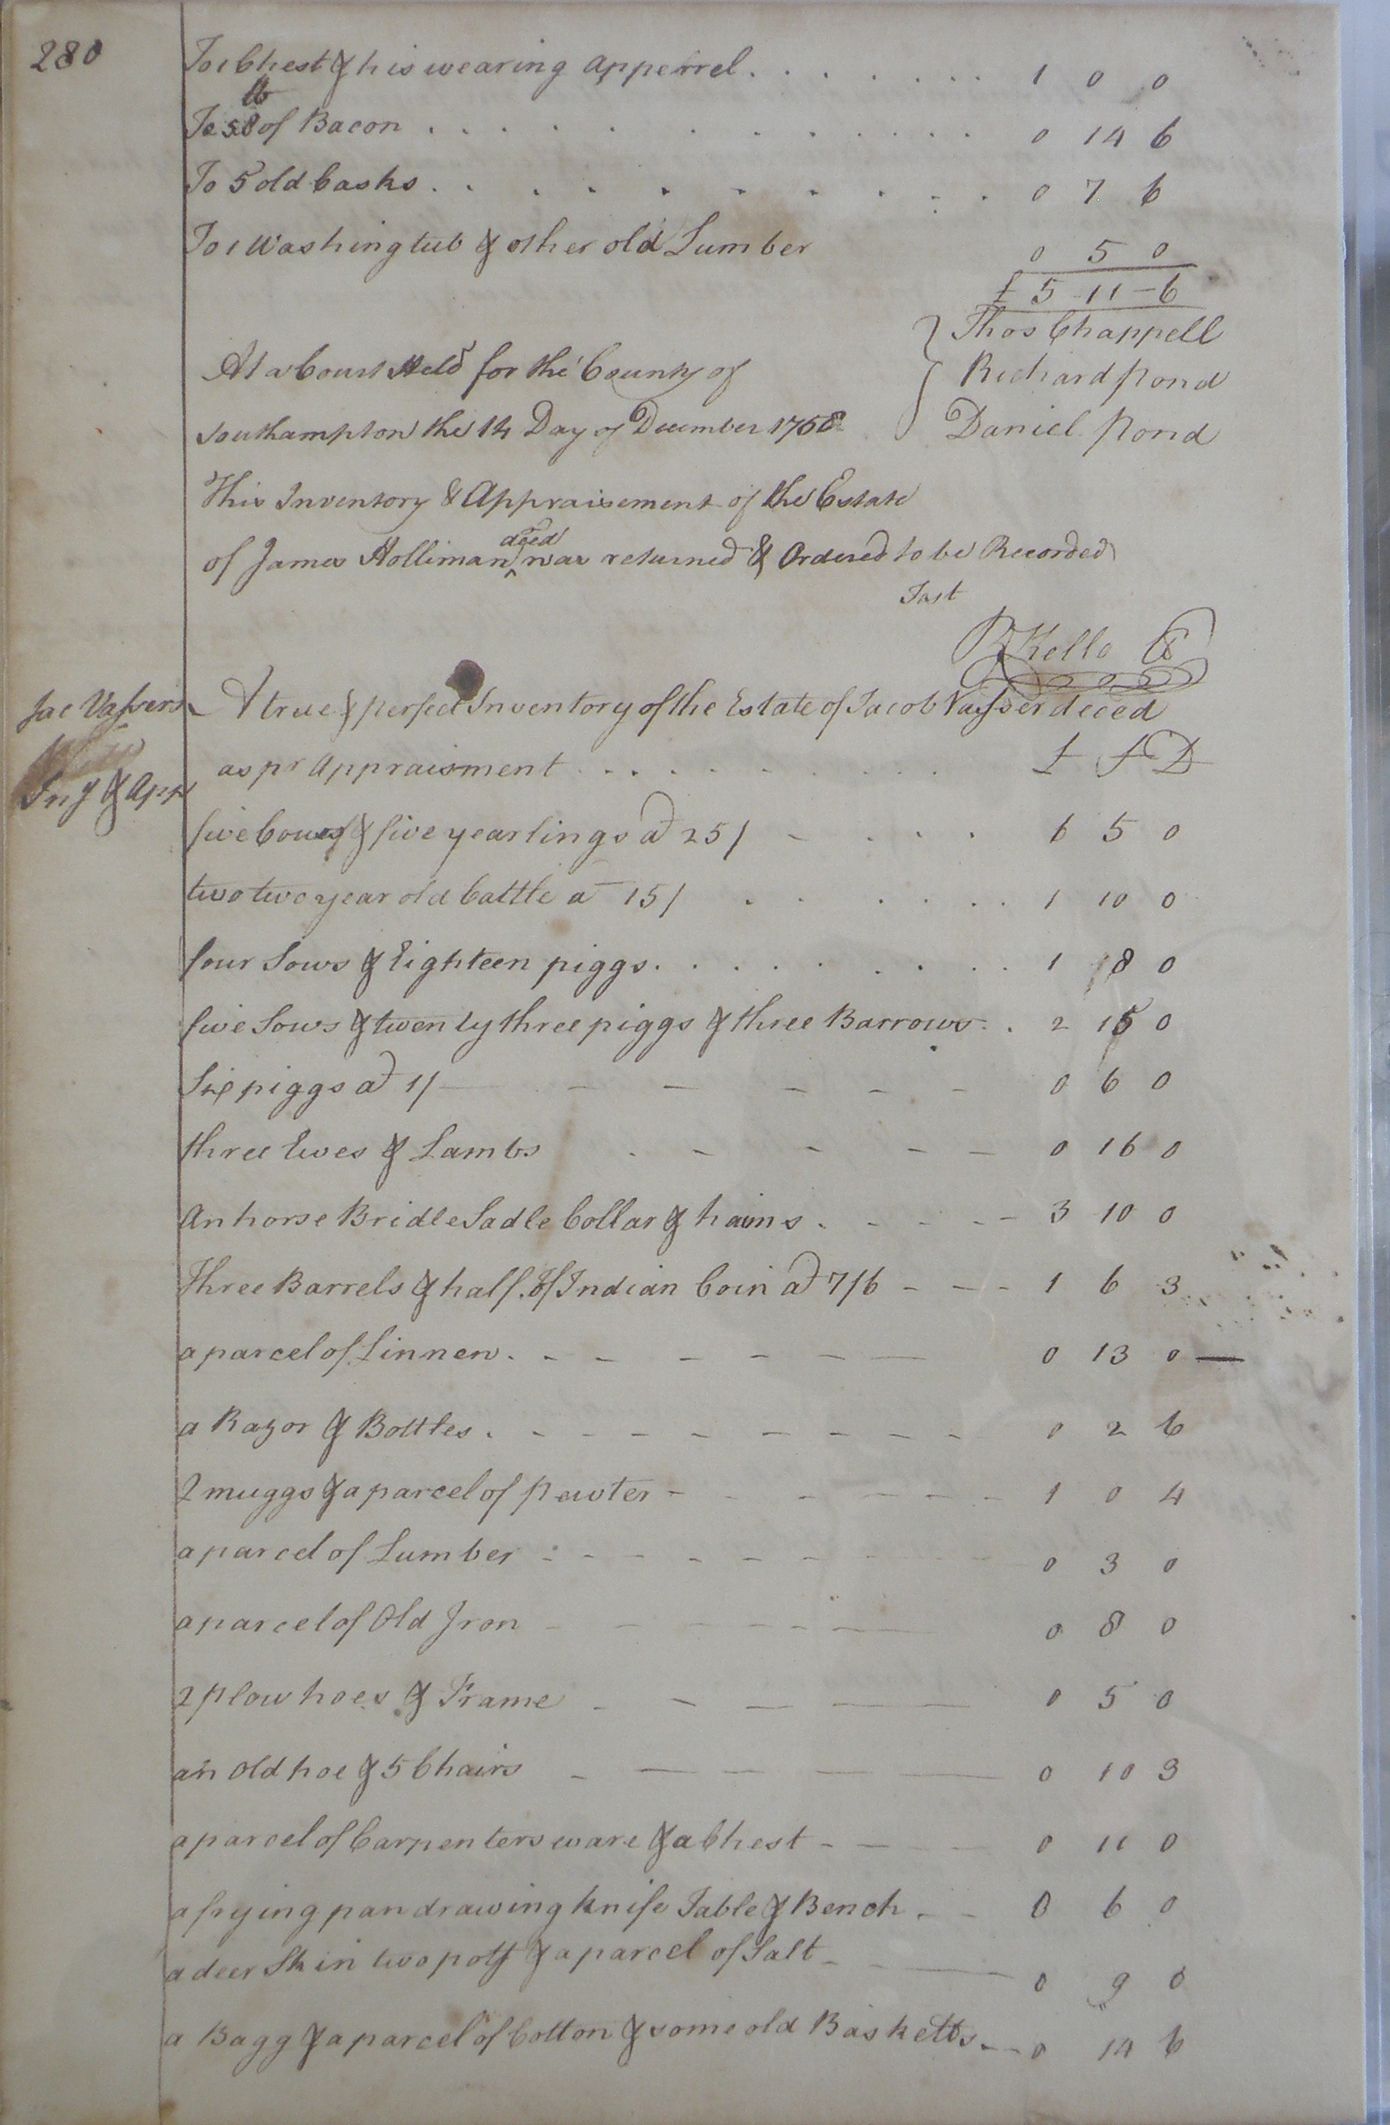 280
To 1 Chest & his wearing apperrel . . . . . . . 1 0 0
To 58 lb of Bacon . . . . . . . . . . 0 14 6
To 5 old Casks . . . . . . . . . 0 7 6
To 1 Washing tub & other old Lumber 0 5 0
£ 5 - 11 - 6
Thos Chappell
At a Court Held for the County of
Richard Pond
Southampton the 14 Day of December 1758
Daniel Pond
This Inventory & Appraisement of the Estate
of James Holliman deced was returned & Ordered to be Recorded
Test
R Kello Cl
Jac
A true & perfect Inventory of the Estate of Jacob deced
as pr Appraisment . . . . . . . £ S D
Inv & App
five Cows & five yearlings a 25/ - . . . 6 5 0
two two year old Cattle a 15/ . . . . . . 1 10 0
four Sows & Eighteen piggs . . . . . . . . 1 18 0
five Sows & twenty three piggs & three Barrows . . 2 15 0
Six piggs a 1/ - - - - - - 0 6 0
three Ewes & Lambs . - - - - 0 16 0
An horse Bridle Sadle Collar & haims . - - - - 3 10 0
Three Barrels & half of Indian Corn a 7/6 - - - 1 6 3
a parcel of Linnen . - - - - - - 0 13 0
a Razor & Bottles . - - - - - - - - 0 2 6
2 muggs & a parcel of Pewter - - - - - - - 1 0 4
a parcel of Lumber - - - - - - - - 0 3 0
a parcel of Old Iron - - - - - - - 0 8 0
2 plow hoes & Frame - - - - - 0 5 0
an old hoe & 5 Chairs - - - - - 0 10 3
a parcel of Carpenters ware & a Chest - - - 0 11 0
a frying pan drawing knife Table & Bench . - - 0 6 0
a deer Skin two potts & a parcel of Salt - - - 0 9 0
a Bagg & a parcel of Cotton & some old Basketts - - 0 14 6